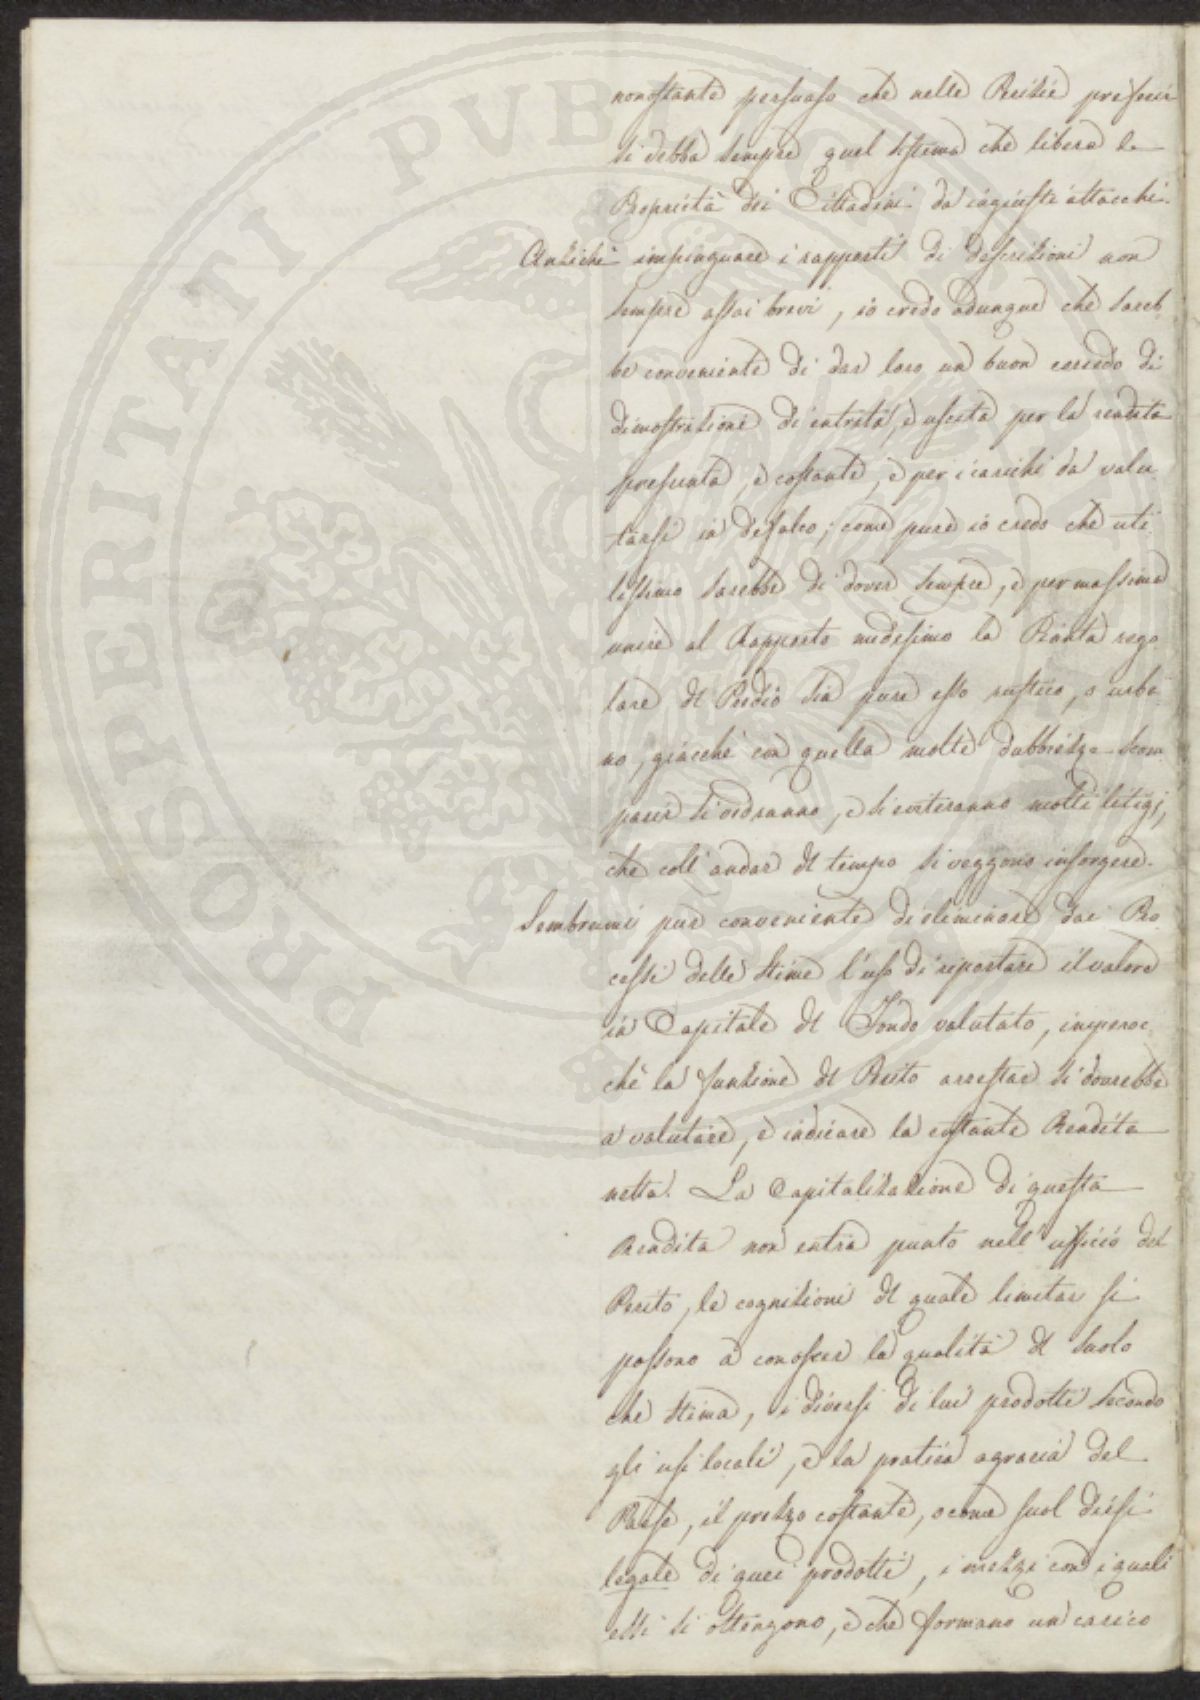 nonostante persuaso che nelle Perizie preferir
si debba sempre quel sistema che libera le
Proprietà dei Cittadini da ingiusti attacchi.
Anzichè impinguare i rapporti di descrizioni non
sempre assai brevi, io credo adunque che sareb„
be conveniente di dar loro un buon corredo di
dimostrazioni d'entrata, e uscita per la rendita
presunta, e costante, e per i carichi da valu„
tarsi in defalco; come pure io credo che uti„
lissimo sarebbe di dover sempre, e per massima
unire al Rapporto medesimo la Pianta rego„
lare del Predio sia pure esso rustico, o urba„
no, giacchè con quella molte dubbiezze scom„
parir si vedranno, e si eviteranno molti litigj,
che coll'andar del tempo si veggono insorgere.
Sembrami pur conveniente di eliminare dai Pro„
cessi delle Stime l'uso di riportare il valore
in Capitale del Fondo valutato, imperoc„
chè la funzione del Perito arrestar si dovrebbe
a valutare, e indicare la costante Rendita
netta. La Capitalizazione di questa
Rendita non entra punto nell'ufficio del
Perito, le cognizioni del quale limitar si
possono a conoscer la qualità del Suolo
che stima, i diversi di lui prodotti secondo
gli usi locali, e la pratica agraria del
Paese, il prezzo costante, o come suol dirsi
legale di quei prodotti, i mezzi con i quali
essi si ottengono, e che formano un carico
PROSPERITATI PUBLICAE